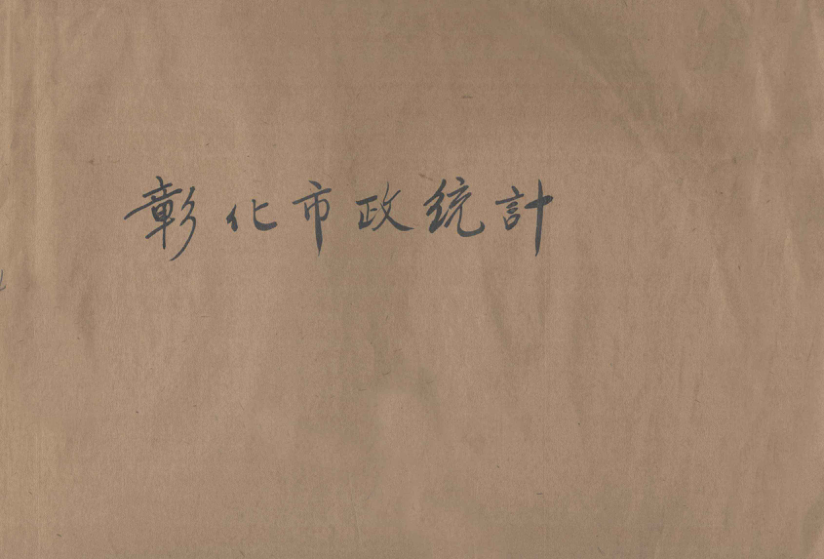 彰化市政統計